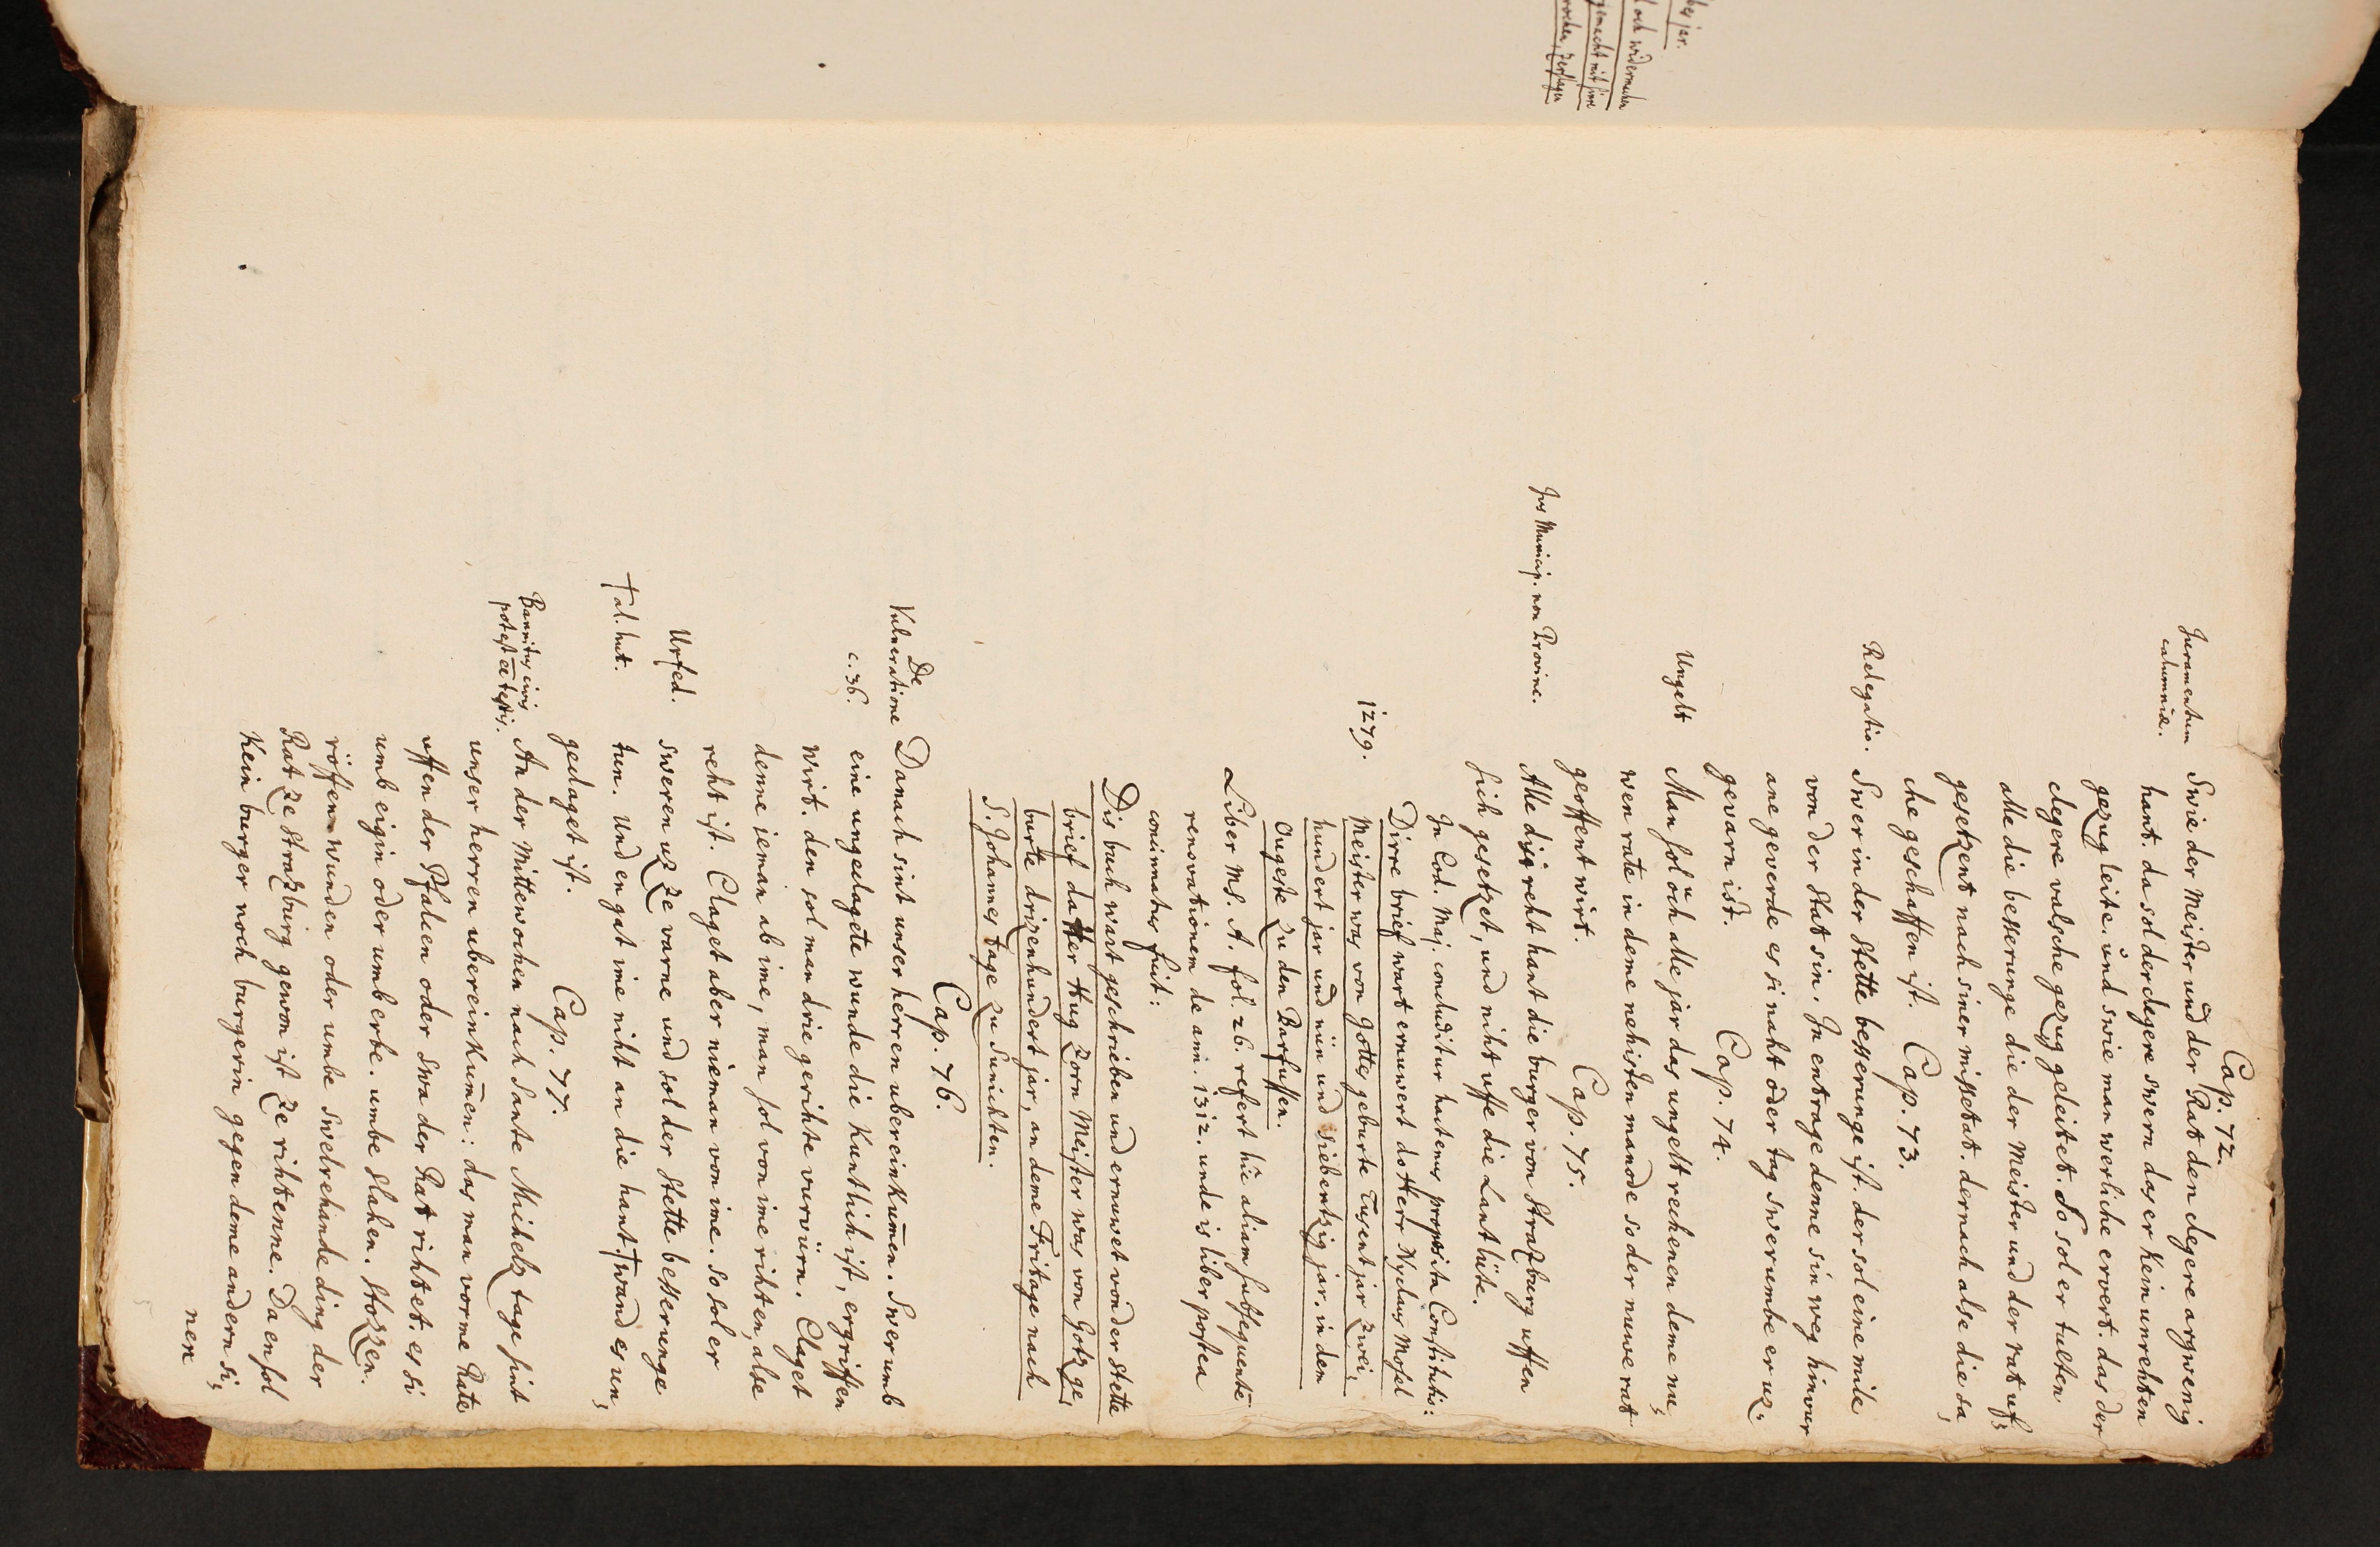 Cap. 72.
Juramentum
calumniæ.
Swie der Meister und der Rat den clegere argwenig
hant. da sol der clegere swern das er kein unrehten
gezug leite. und swie man werliche ervert. das der
clegere valsche gezug geleitet. So sol er tulten
alle die besserunge die der Meister und der rat ufs
gesetzent nach siner missetat. dernach alse die sa,
che geschaffen ist. Cap. 73.
Relegatio.
Swer in der Stette besserunge ist. der sol eine mile
von der Stat sin. In entrage denne sin weg hinvur
ane geverde es si naht oder tag swerumbe er uz.
gevarn ist. Cap. 74.
Ungelt
Man sol öch alle jar das ungelt rechenen deme nu,
wen rate in deme nehisten manode so der nuwe rat
geoffent wirt. Cap. 75.
Jus Municip. non Provinc.
Alle disi reht hant die burger von Strazburg uffen
sich gesetzet, und niht uffe die Lantlüte.
In Cod. Maj. concluditur hactenus proposita Constitutio:
1279.
Dirre brief wart ernuwert do Herr Nyclaus Mosel
Meister was von Gottes geburte Tusent jar zwei,
hundert jar und nün und siebentzig jar, in den
Ougeste zu den Barfussen.
Liber MS. A. fol. 26. refert hîc aliam subsequentẽ
renovationem de ann. 1312. unde is liber postea
concinnatus fuit:
Dis buch wart geschrieben und ernuwet von der Stette
brief da Her Hug Zorn Meister was von Gotz ge,
burte drizenhundert jar, an deme Fritage nach
S. Johannes tage zu Sunihten.
Cap. 76.
De
Vulneratione
c. 36.
Danach sint unser herren ubereinkum̃en. Swer umb
eine ungeclagete wunde die kuntlich ist, ergriffen
wirt. den sol man drie gerihte vurvürn. Claget
denne ieman ab ime, man sol von ime rihten, alse
reht ist. Claget aber nieman von ime. so sol er
Urfed.
sweren uz ze varne und sol der Stette besserunge
† al. hut.
tun. Und en gat ime niht an die hant. † wand es un,
gedaget ist. Cap. 77.
Bannitus civis
potest eẽ testis.
An der Mittewochen nach Sante Michels tage sint
unser herren ubereinkum̃en: das man vorme Rate
uffen der Pfalcen oder swa der Rat rihtet. es si
umb eigin oder umb erbe. umbe slahen. stozzen.
röffen wunden oder umbe swelrehande ding der
Rat ze Strazburg gewon ist ze rihtenne. Da en sol
kein burger noch burgerin gegen deme andern si,
nen